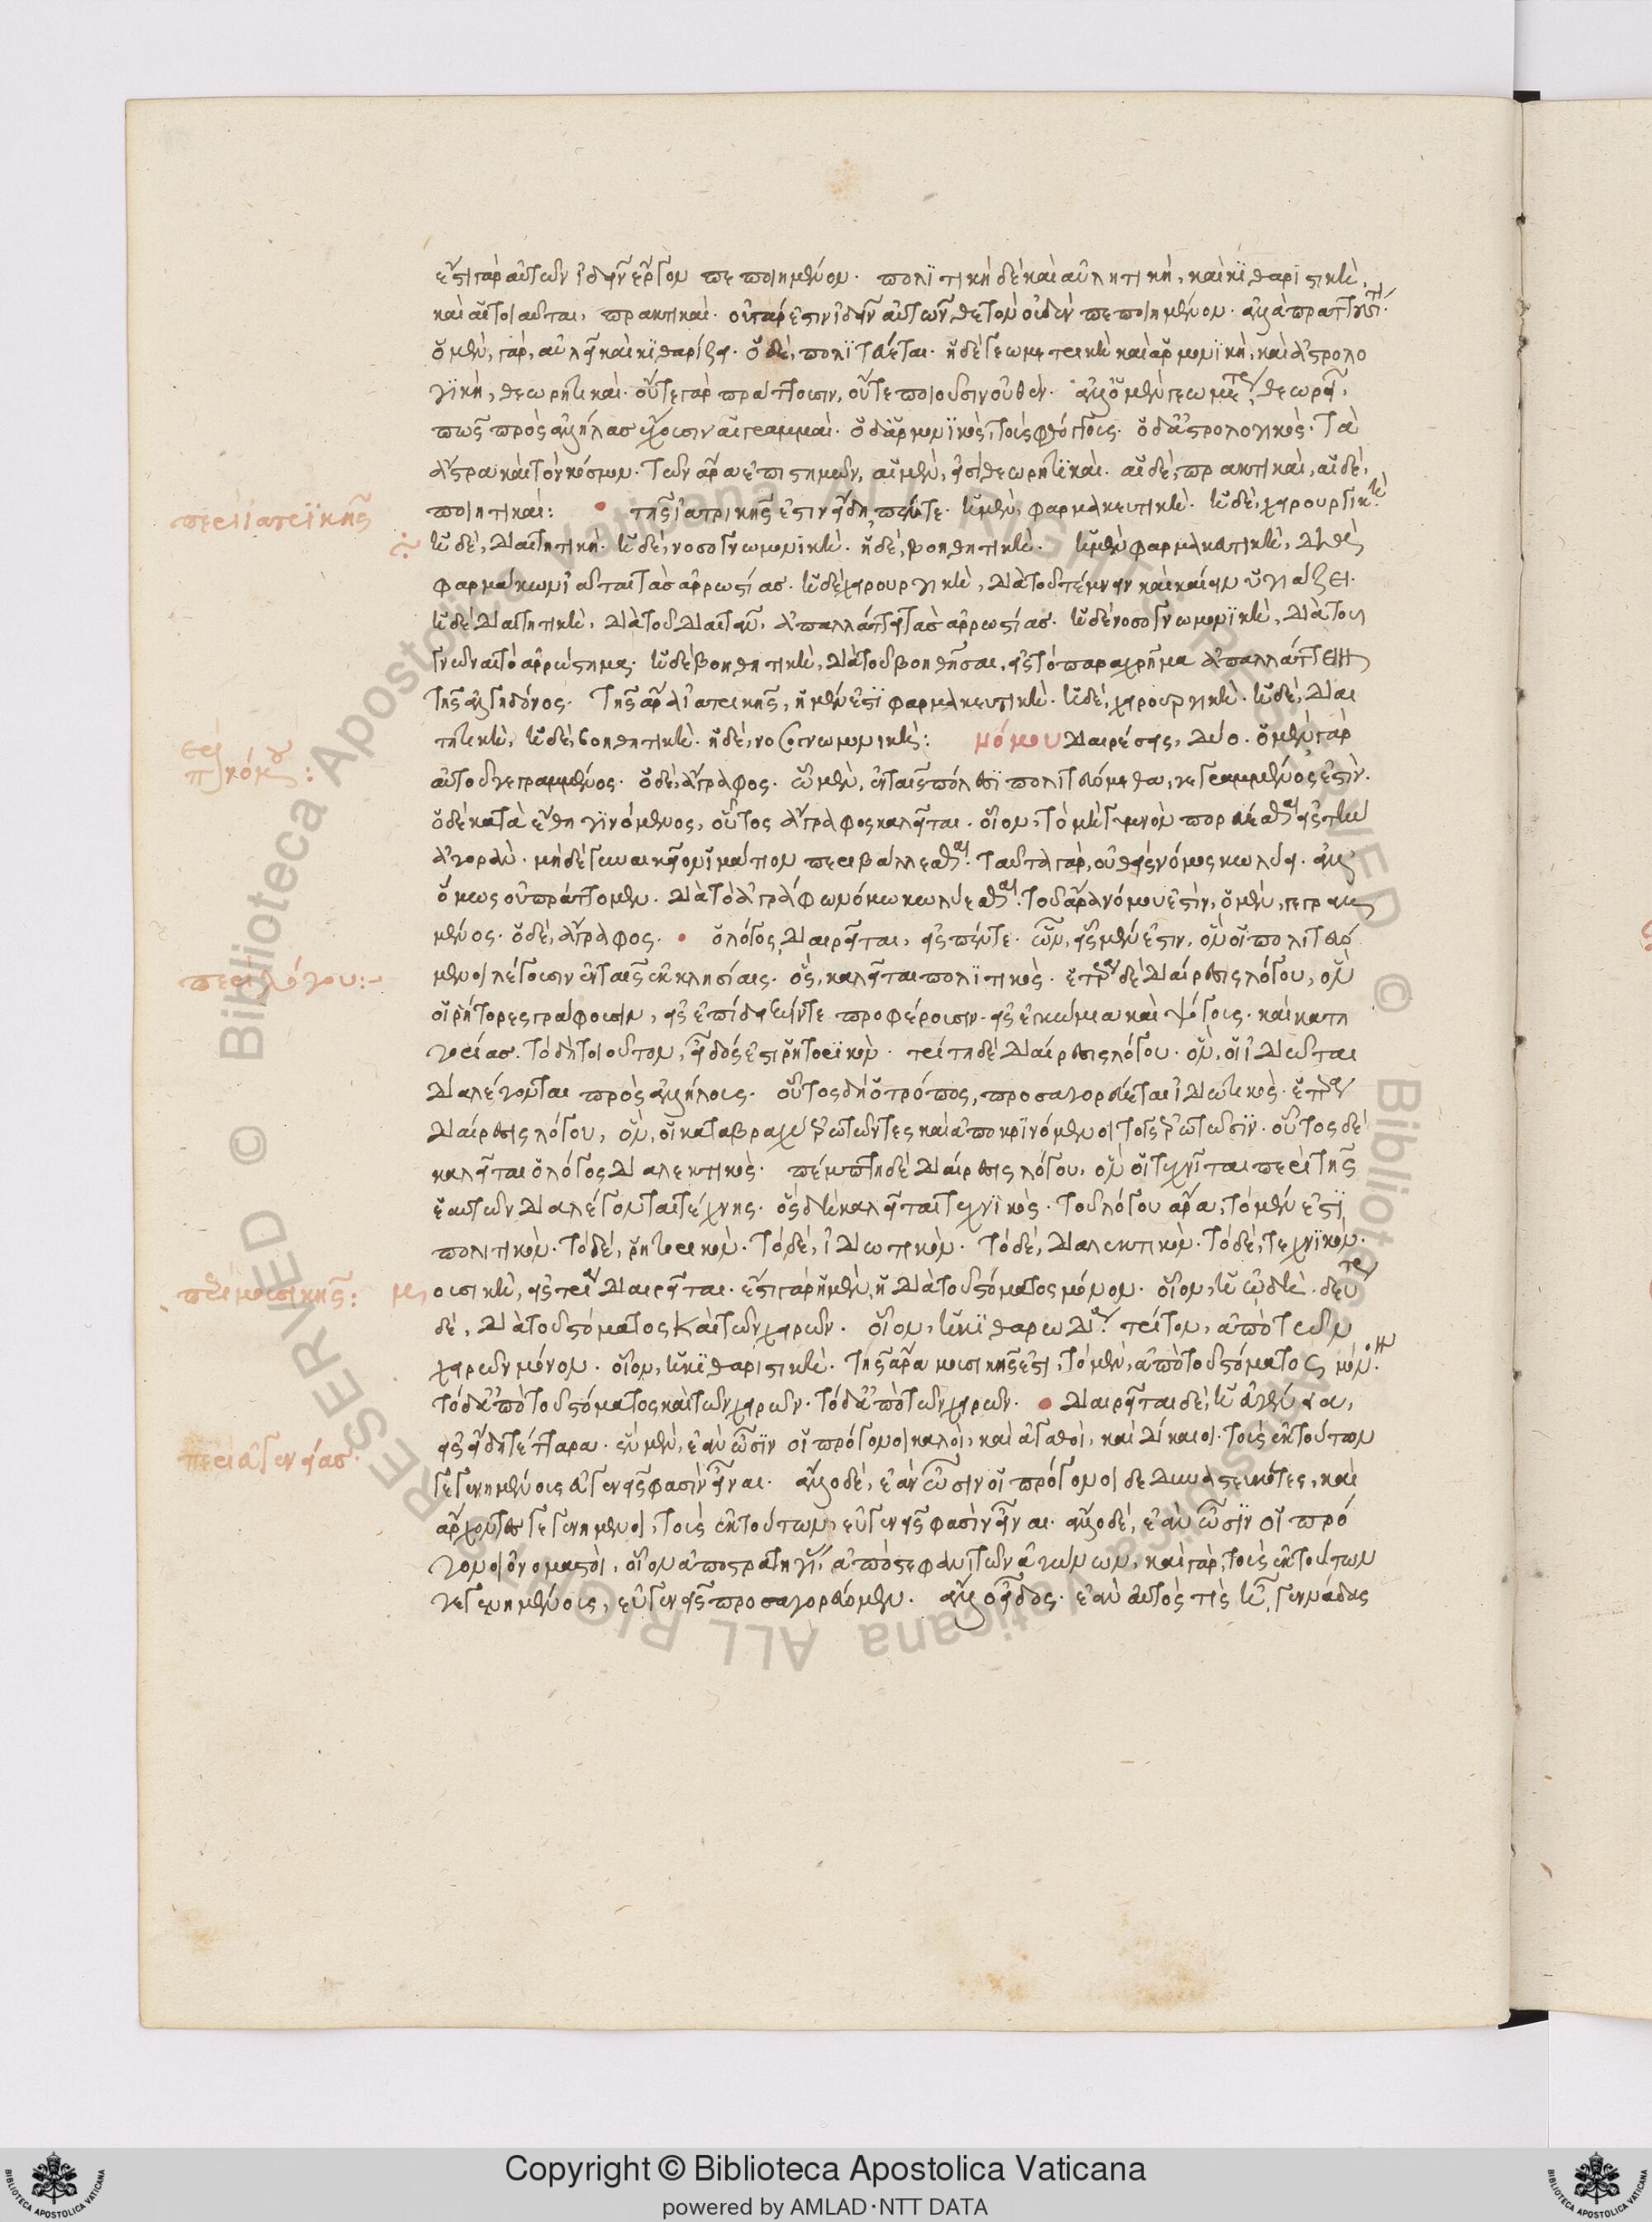 ἔστι γὰρ αὐτῶν ἰδεῖν ἔργον πεποιημένον. πολιτικὴ δὲ καὶ αὐλητικὴ, καὶ κιθαριστικὴ,
καὶ αἱ τοιαῦται, πρακτικαί. οὐ γάρ ἐστιν ἰδεῖν αὐτῶν θετὸν οὐδὲν πεποιημένον. ἀλλὰ πράττουσί τι.
ὁ μὲν γὰρ, αὐλεῖ καὶ κιθαρίζει. ὁ δὲ, πολιτεύεται. ἡ δὲ γεωμετρικὴ καὶ ἁρμονικὴ, καὶ ἀστρολο
γικὴ, θεωρητικαί. οὔτε γὰρ πράττουσιν, οὔτε ποιοῦσιν οὐθέν. ἀλλ' ὁ μὲν γεωμέτρης θεωρεῖ,
πῶς πρὸς ἀλλήλας ἔχουσιν αἱ γραμμαί. ὁ δ' ἁρμονικὸς, τοὺς φθόγγους. ὁ δ' ἀστρολογικὸς, τὰ
ἄστρα καὶ τὸν κόσμον. τῶν ἄρα ἐπιστημῶν, αἱ μὲν, εἰσὶ θεωρητικαί. αἱ δὲ, πρακτικαί, αἱ δὲ,
ποιητικαί: τῆς ἰατρικῆς ἐστιν εἴδη πέντε. ἡ μὲν, φαρμακευτική. ἡ δὲ, χειρουργική.
περὶ ἰατρικῆς
ἡ δὲ, διαιτητική. ἡ δὲ, νοσογνωμονική. ἡ δὲ, βοηθητική. ἡ μὲν φαρμακευτικὴ, διὰ
φαρμάκων ἰᾶται τὰς ἀρρωστίας. ἡ δὲ χειρουργικὴ, διὰ τοῦ τέμνειν καὶ καίειν ὑγιάζει.
ἡ δὲ διαιτητικὴ, διὰ τοῦ διαιτᾶν, ἀπαλλάττει τὰς ἀρρωστίας. ἡ δὲ νοσογνωμονικὴ, διὰ τοῦ
γνῶναι τὸ ἀρρώστημα. ἡ δὲ βοηθητικὴ, διὰ τοῦ βοηθῆσαι, εἰς τὸ παραχρῆμα ἀπαλλάττειν
τῆς ἀλγηδόνος. τῆς ἄρα ἰατρικῆς, ἡ μέν ἐστι φαρμακευτική. ἡ δὲ, χειρουργική. ἡ δὲ, διαι
τητικὴ, ἡ δὲ, βοηθητική. ἡ δὲ, νοσογνωμονική: νόμου διαιρέσεις, δύο. ὁ μὲν γὰρ
περὶ νόμου:
αὐτοῦ γεγραμμένος. ὁ δὲ, ἄγραφος. ᾧ μὲν, ἐν ταῖς πόλεσι πολιτευόμεθα, γεγραμμένος ἐστίν.
ὁ δὲ κατὰ ἔθη γινόμενος, οὗτος ἄγραφος καλεῖται. οἷον, τὸ μὴ γυμνὸν πορεύεσθαι εἰς τὴν
ἀγοράν. μηδὲ γυναικεῖον ἱμάτιον περιβάλλεσθαι. ταῦτα γὰρ, οὐθεὶς νόμος κωλύει. ἀλλ'
ὅμως οὐ πράττομεν. διὰ τὸ ἀγράφω νόμω κωλύεσθαι. τοῦ ἄρα νόμου ἐστὶν, ὁ μὲν, γεγραμ
μένος. ὁ δὲ, ἄγραφος. ὁ λόγος διαιρεῖται, εἰς πέντε. ὧν, εἷς μέν ἐστιν, ὃν οἱ πολιτευό
μενοι λέγουσιν ἐν ταῖς ἐκκλησίαις. ὃς, καλεῖται πολιτικός. ἑτέρα δὲ διαίρεσις λόγου, ὃν
περὶ λόγου:-
οἱ ῥήτορες γράφουσιν, εἰς ἐπίδειξιν τε προφέρουσιν. εἰς ἐγκώμια καὶ ψόγους. καὶ κατη
γορίας. τὸ δὴ τοιοῦτον, εἶδός ἐστι ῥητορικόν. τρίτη δὲ διαίρεσις λόγου. ὃν, οἱ ἰδιῶται
διαλέγονται πρὸς ἀλλήλους. οὗτος δὴ ὁ τρόπος, προσαγορεύεται ἰδιωτικός. ἑτέρα
διαίρεσις λόγου, ὃν, οἱ κατὰ βραχὺ ἐρωτῶντες καὶ ἀποκρινόμενοι τοῖς ἐρωτῶσιν. οὗτος δὲ
καλεῖται ὁ λόγος διαλεκτικός. πέμπτη δὲ διαίρεσις λόγου, ὃν οἱ τεχνῖται περὶ τῆς
ἑαυτῶν διαλέγονται τέχνης. ὃς δὴ καλεῖται τεχνικός. τοῦ λόγου ἄρα, τὸ μέν ἐστι
πολιτικόν. τὸ δὲ, ῥητορικόν. τὸ δὲ, ἰδιωτικόν. τὸ δὲ, διαλεκτικόν. τὸ δὲ, τεχνικόν.
περὶ μουσικῆς:
μουσικὴ, εἰς τρία διαιρεῖται. ἔστι γὰρ ἡ μὲν, ἡ διὰ τοῦ στόματος μόνον. οἷον, ἡ ᾠδή. δευτέρα
δὲ, διὰ τοῦ στόματος καὶ τῶν χειρῶν. οἷον, ἡ κιθαρωδία. τρίτον, ἀπὸ τῶν
χειρῶν μόνον. οἷον, ἡ κιθαριστική. τῆς ἄρα μουσικῆς ἐστι, τὸ μὲν, ἀπὸ τοῦ στόματος μόνον.
τὸ δ' ἀπὸ τοῦ στόματος καὶ τῶν χειρῶν. τὸ δ' ἀπὸ τῶν χειρῶν. διαιρεῖται δὲ, ἡ εὐγένεια,
εἰς εἴδη τέτταρα. ἓν μὲν, ἐὰν ὦσιν οἱ πρόγονοι καλοὶ, καὶ ἀγαθοὶ, καὶ δίκαιοι. τοὺς ἐκ τούτων
περὶ εὐγενείας.
γεγενημένους εὐγενεῖς φασὶν εἶναι. ἄλλο δὲ, ἐὰν ὦσιν οἱ πρόγονοι δεδυναστευκότες, καὶ
ἄρχοντες γεγενημένοι, τοὺς ἐκ τούτων, εὐγενεῖς φασὶν εἶναι. ἄλλο δὲ, ἐὰν ὦσιν οἱ πρό
γονοι ὀνομαστοὶ, οἷον ἀπὸ στρατηγίας ἀπὸ στεφανιτῶν ἀγώνων, καὶ γὰρ, τοὺς ἐκ τούτων
γεγενημένους, εὐγενεῖς προσαγορεύομεν. ἄλλο εἶδος. ἐὰν αὐτός τις ᾖ γεννάδας
Copyright © Biblioteca Apostolica Vaticana
powered by AMLAD·NTT DATA